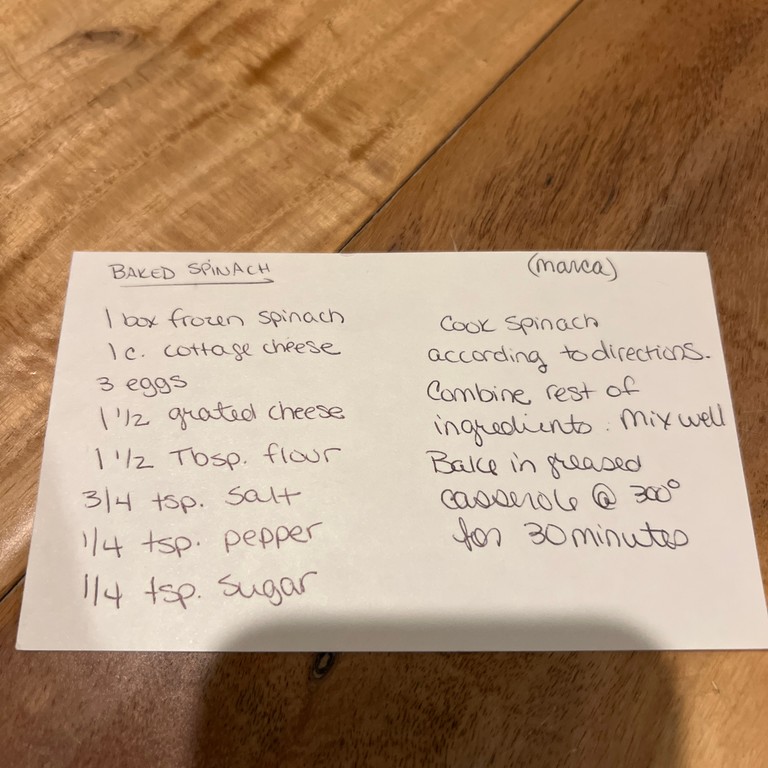 BAKED SPINACH
(marca)
1 box frozen spinach
1 c. cottage cheese
3 eggs
1 1/2 grated cheese
1 1/2 Tbsp. flour
3/4 tsp. salt
1/4 tsp. pepper
1/4 tsp. sugar
Cook spinach
according to directions.
Combine rest of
ingredients. Mix well
Bake in greased
casserole @ 300°
for 30 minutes